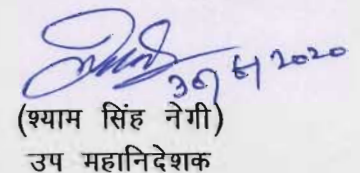 30/6/2020
(श्याम सिंह नेगी)
उप महानिदेशक